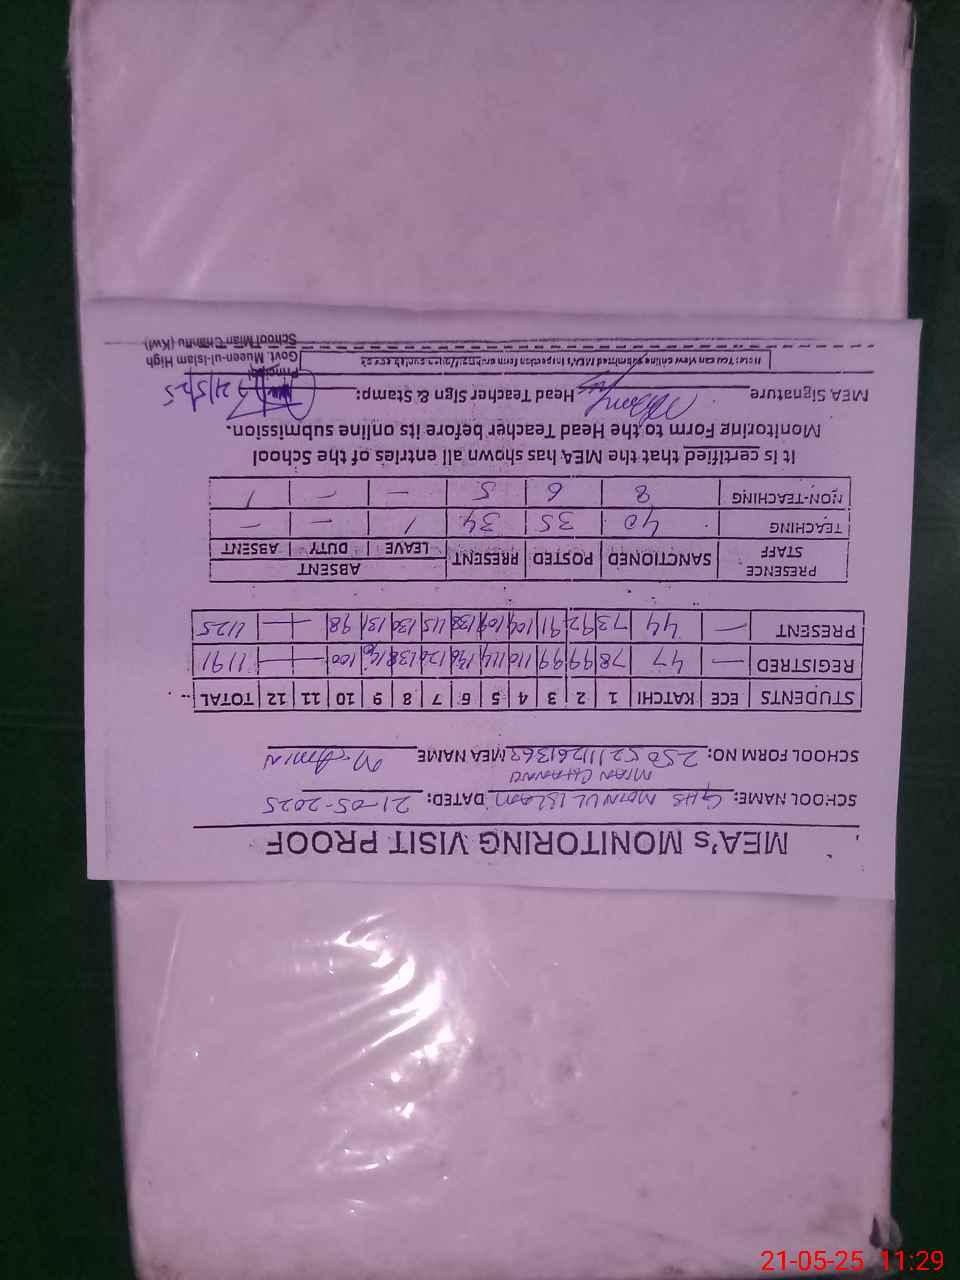 MEA's MONITORING VISIT PROOF
SCHOOL NAME: GHS MOINUL ISLAM DATED: 21-05-2025
MIAN CHANNU
SCHOOL FORM NO: MEA NAME M. Amin
STUDENTS ECE KATCHI 1 2 3 4 5 6 7 8 9 10 11 12 TOTAL
REGISTRED — 47 78 99 99 110 114 136 126 138 100 — — 1191
PRESENT — 44 73 92 91 104 109 138 115 130 131 98 — — 1125
PRESENCE STAFF SANCTIONED POSTED PRESENT ABSENT
LEAVE DUTY ABSENT
TEACHING 40 35 34 1 — —
NON-TEACHING 8 6 5 — — 1
It is certified that the MEA has shown all entries of the School
Monitoring Form to the Head Teacher before its online submission.
MEA Signature Head Teacher Sign & Stamp: 21/5/25
Note: You can view online submitted MEA's inspection form on
Principal
Govt. Mueen-ul-Islam High
School Mian Channu (Kwl)
21-05-25 11:29